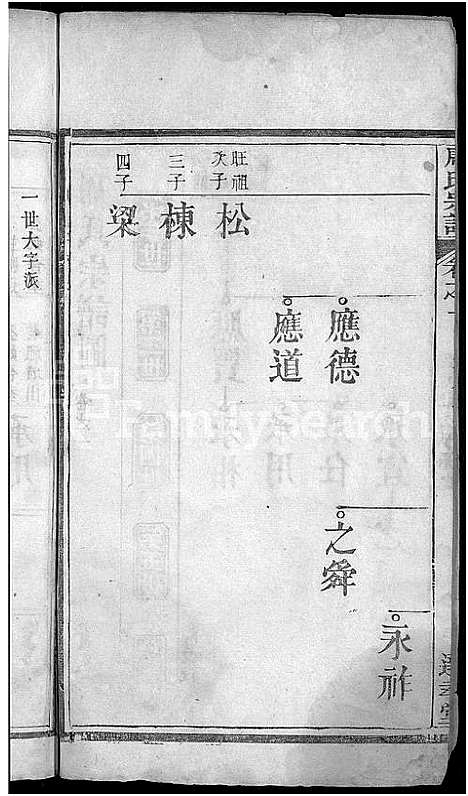 旺祖
次子
松
三子
棟
四子
梁
應德
應道
之舜
永祚
氏宗譜
卷之一
一世大字派
FamilySearch